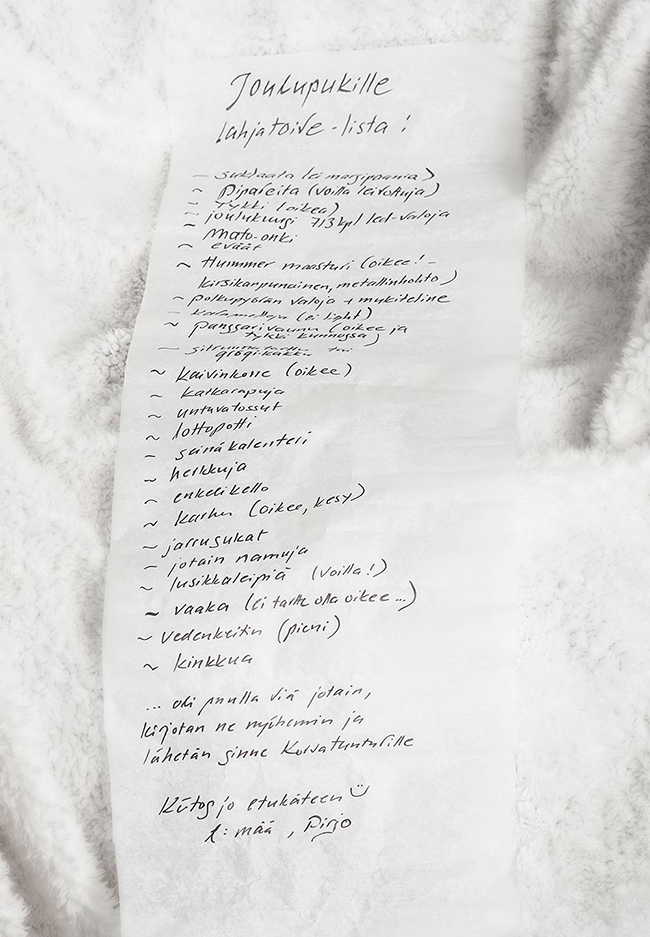 Joulupukille
lahjatoive-lista!
– suklaata (ei marsipaania)
~ pipareita (voilla leivottuja)
– tykki (oikea)
~ joulukuusi 713 kpl led-valoja
– mato-onki
~ eväät
~ Hummer maasturi (oikee! –
kirsikanpunainen, metallinhohto)
~ polkupyörän valoja + mukiteline
– karamelleja (ei light)
~ panssarivaunu (oikee ja
tykki kunnossa)
– sitruuna tai
grogi-kakku
~ kaivinkone (oikee)
~ katkarapuja
~ untuvatossut
~ lottopotti
– seinäkalenteri
~ herkkuja
~ enkelikello
~ karhu (oikee, kesy)
~ jarrusukat
– jotain namuja
~ lusikkaleipiä (voilla!)
~ vaaka (ei tartte olla oikee ...)
~ vedenkeitin (pieni)
~ kinkkua
... oli muulla viä jotain,
kirjotan ne myähemmin ja
lähetän sinne Korvatunturille
Kiitos jo etukäteen ☺
t: mää, Pirjo